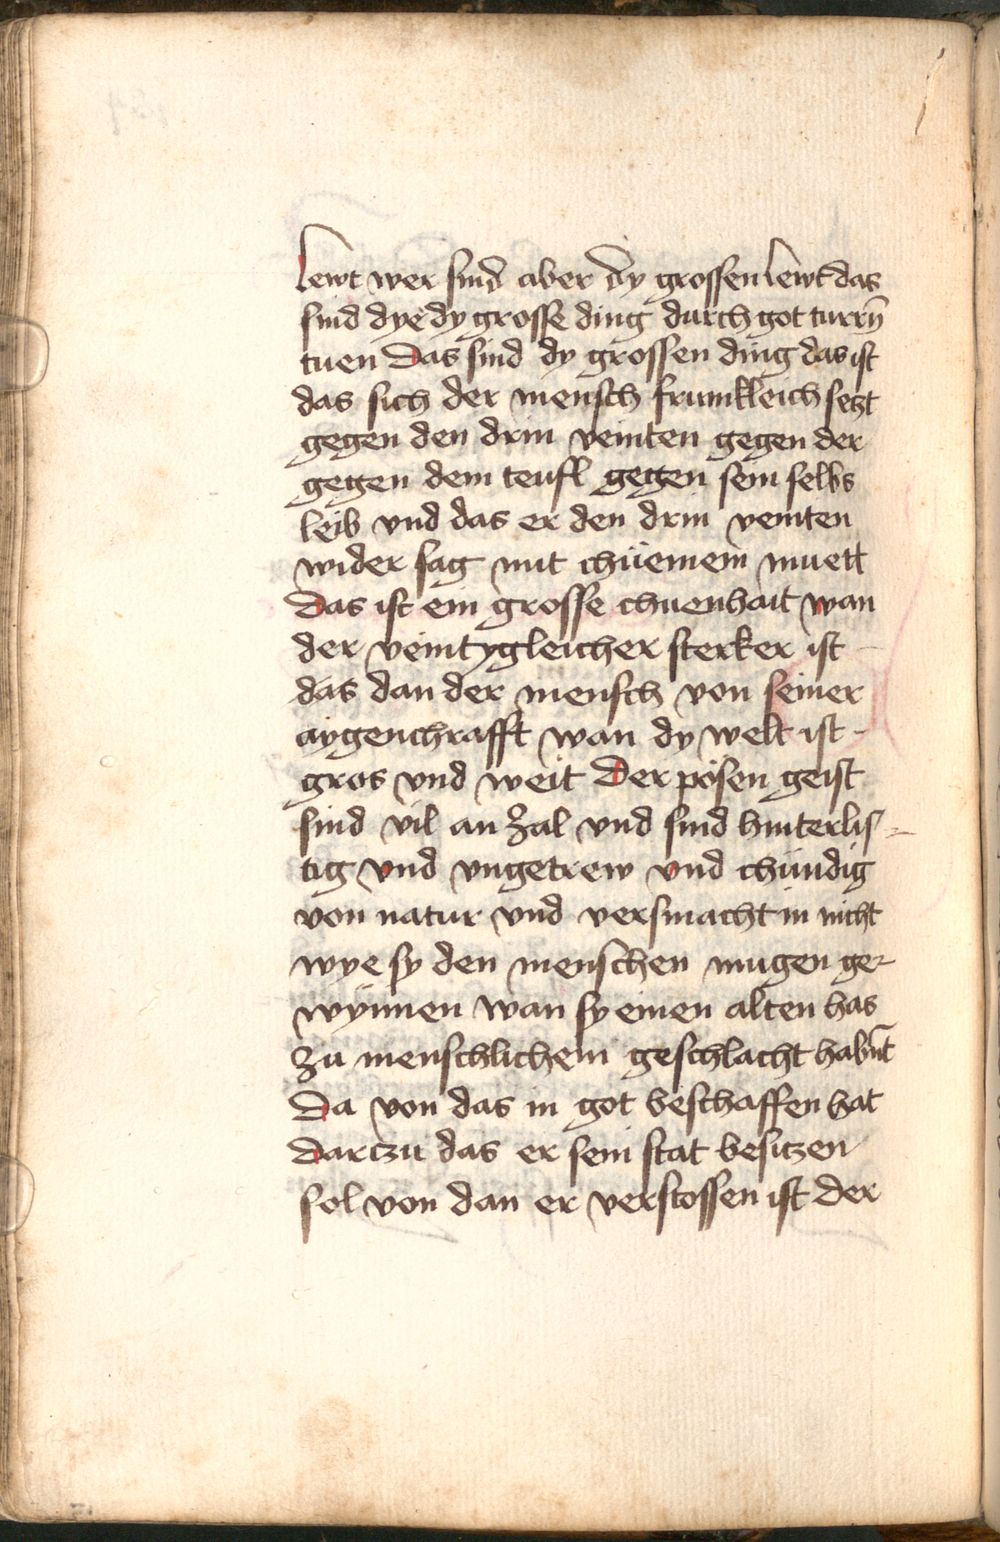 Lewt wer sind aber dy grossen lewt das
sind dye dy grosse ding durch got turrn̄
tuen Das sind dy grossen ding das ist
das sich der mensch frumkleich setzt
gegen den drin veinten gegen der
gegen dem teufl gegen sein selbs
leib vnd das er den drin veinten
wider sag mit chüenem muett
Das ist ein grosse chuenhait wan
der veint ygleicher sterker ist
das dan der mensch von seiner
aygenchrafft wan dy welt ist
gros vnd weit Der pösen geist
sind vil an zal vnd sind hinterlis⸗
tig vnd vngetrew vnd chündig
von natur vnd versmacht in nicht
wye sy den menschen mugen ge⸗
wynnen wan sy einen alten has
zu menschlichem geschlacht habn̄t
Da von das in got beschaffen hat
Darczu das er sein stat besitzen
sol von dan er verstossen ist der